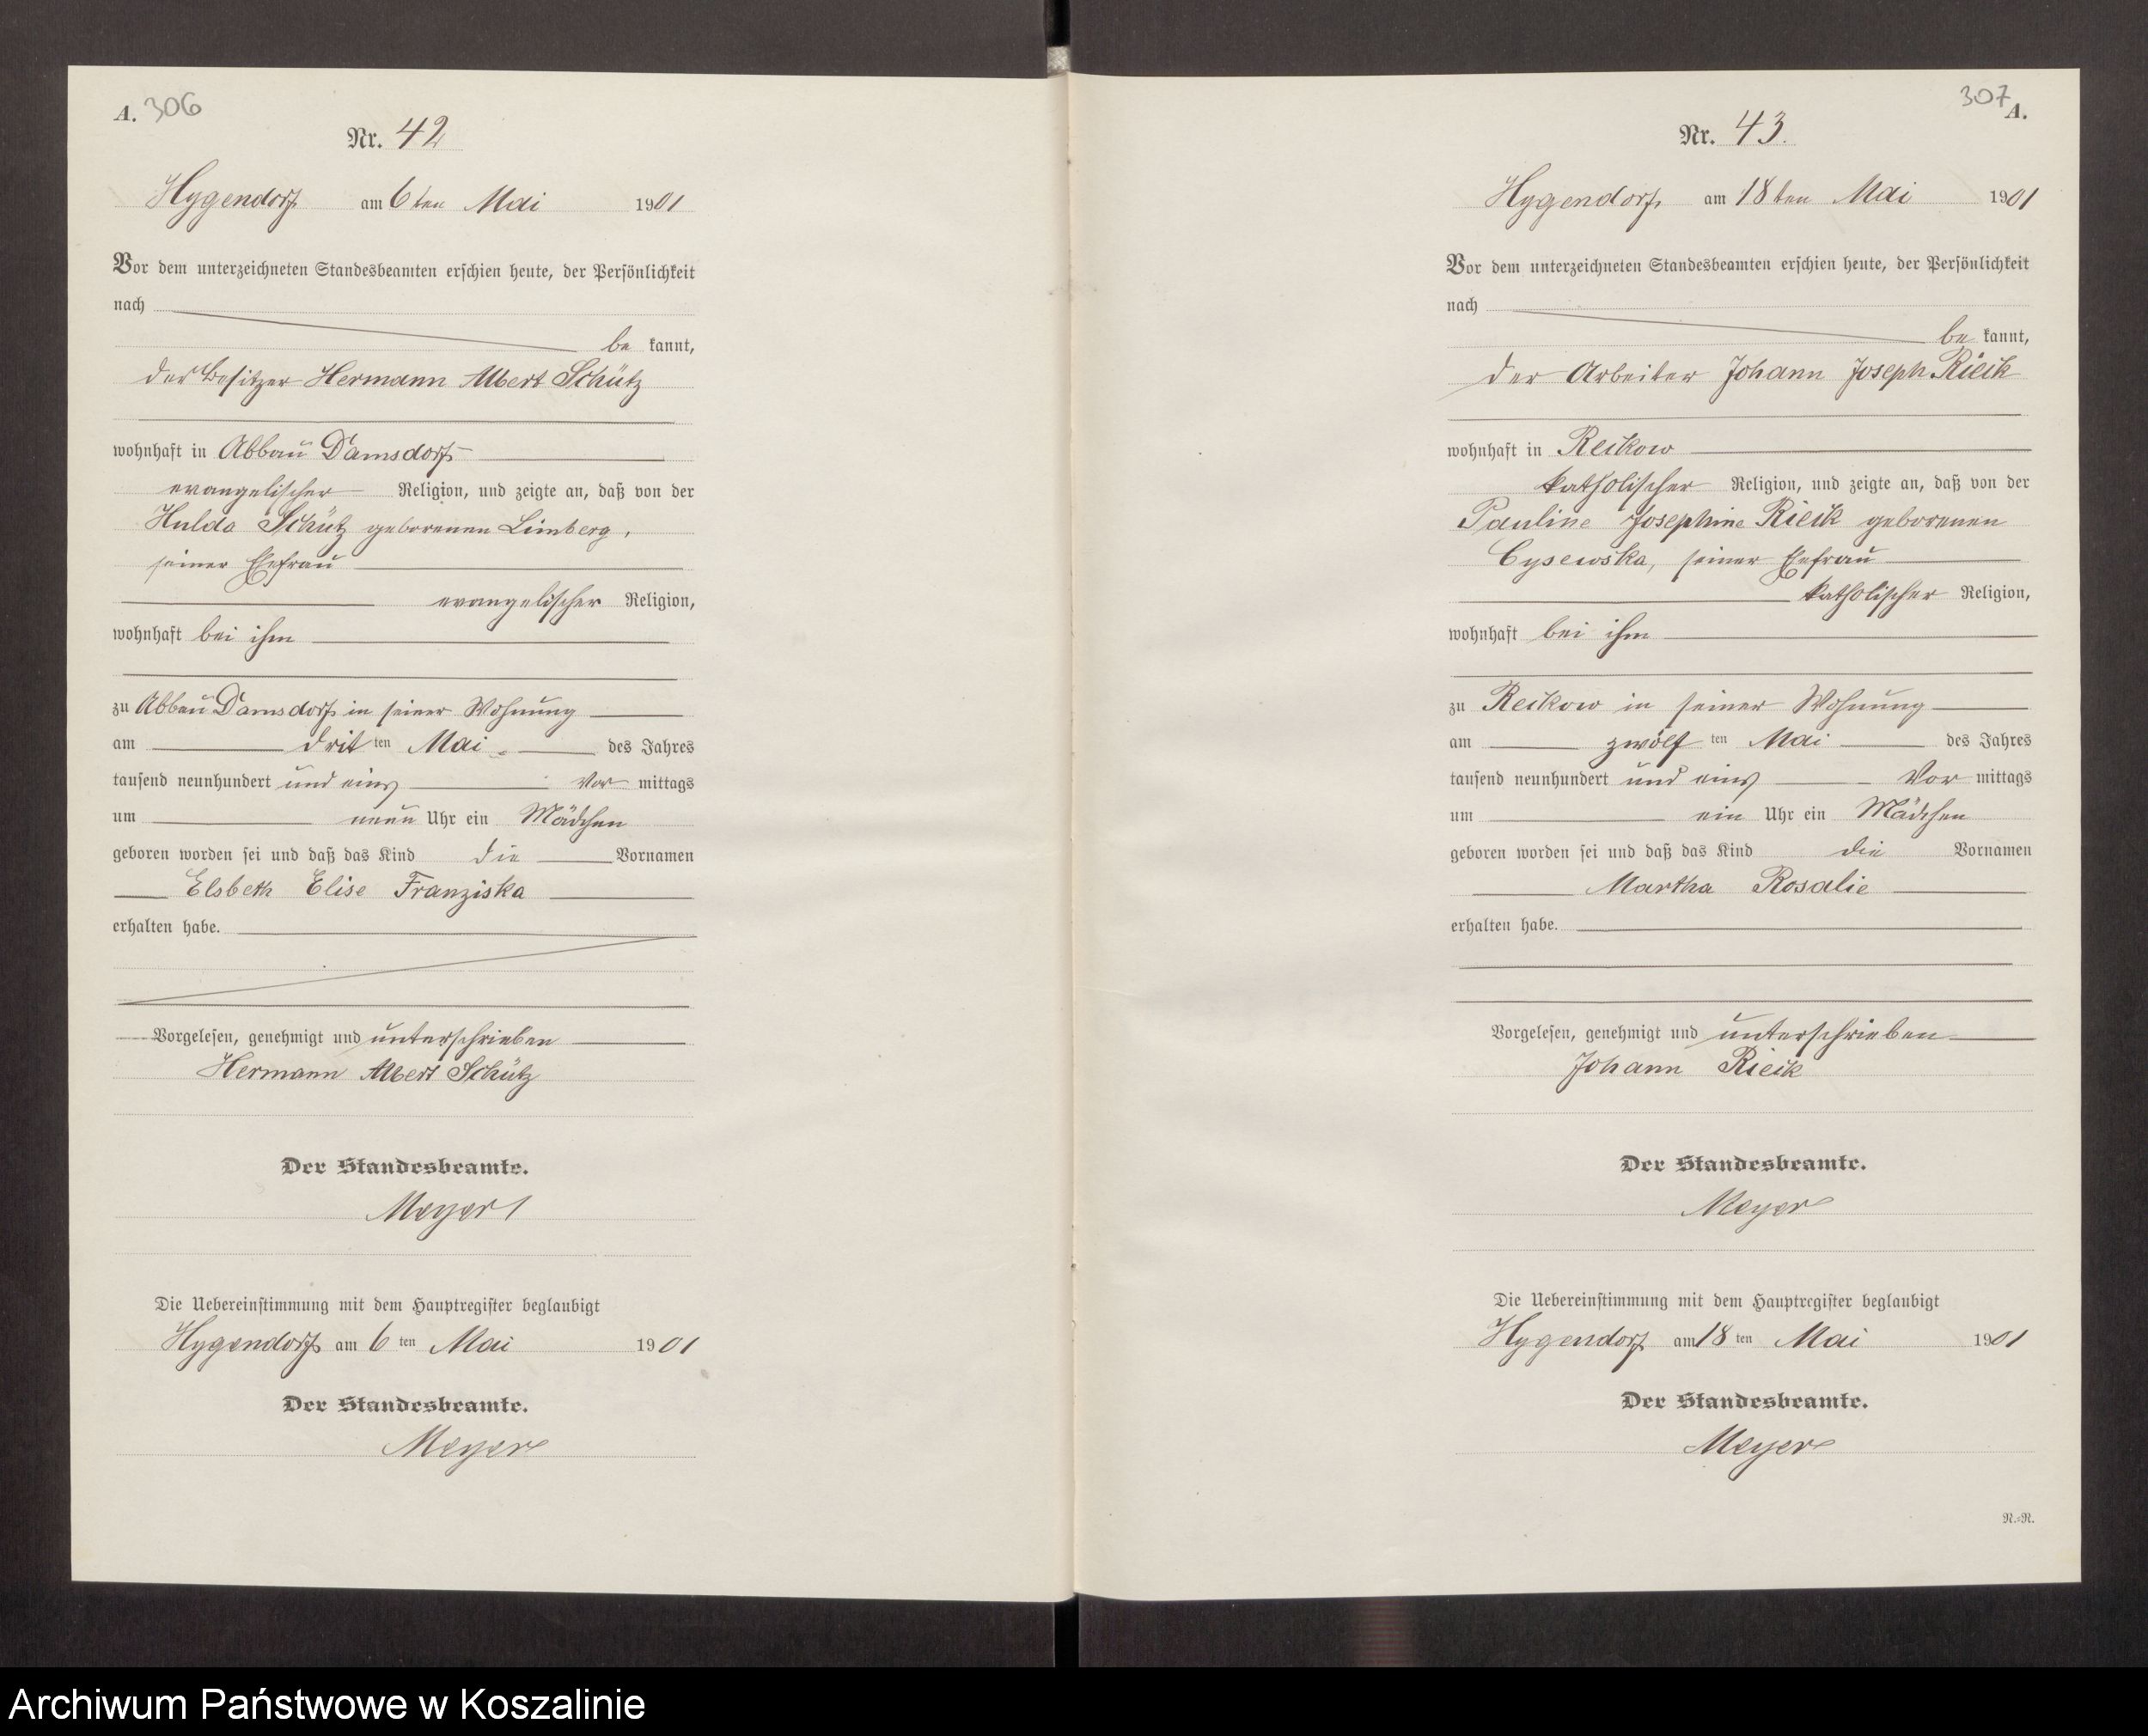 A. 306
Nr. 42
Hygendorf am 6ten Mai 1901
Vor dem unterzeichneten Standesbeamten erschien heute, der Persönlichkeit
nach
be kannt,
der Besitzer Hermann Albert Schütz
wohnhaft in Abbau Damsdorf
evangelischer Religion, und zeigte an, daß von der
Hulda Schütz geborenen Limberg,
seiner Ehefrau
evangelischer Religion,
wohnhaft bei ihm
zu Abbau Damsdorf in seiner Wohnung
am dritten Mai des Jahres
tausend neunhundert und eins Vor mittags
um neun Uhr ein Mädchen
geboren worden sei und daß das Kind die Vornamen
Elsbeth Elise Franziska
erhalten habe.
Vorgelesen, genehmigt und unterschrieben
Hermann Albert Schütz
Der Standesbeamte.
Meyer
Die Uebereinstimmung mit dem Hauptregister beglaubigt
Hygendorf am 6 ten Mai 1901
Der Standesbeamte.
Meyer
307 A.
Nr. 43.
Hygendorf, am 18ten Mai 1901
Vor dem unterzeichneten Standesbeamten erschien heute, der Persönlichkeit
nach
be kannt,
der Arbeiter Johann Joseph Rieik
wohnhaft in Reckow
katholischer Religion, und zeigte an, daß von der
Pauline Josephine Rieik geborenen
Cysewska, seiner Ehefrau
katholischer Religion,
wohnhaft bei ihm
zu Reckow in seiner Wohnung
am zwölf ten Mai des Jahres
tausend neunhundert und eins Vor mittags
um ein Uhr ein Mädchen
geboren worden sei und daß das Kind die Vornamen
Martha Rosalie
erhalten habe.
Vorgelesen, genehmigt und unterschrieben
Johann Rieik
Der Standesbeamte.
Meyer
Die Uebereinstimmung mit dem Hauptregister beglaubigt
Hygendorf am 18 ten Mai 1901
Der Standesbeamte.
Meyer
N.=N.
Archiwum Państwowe w Koszalinie